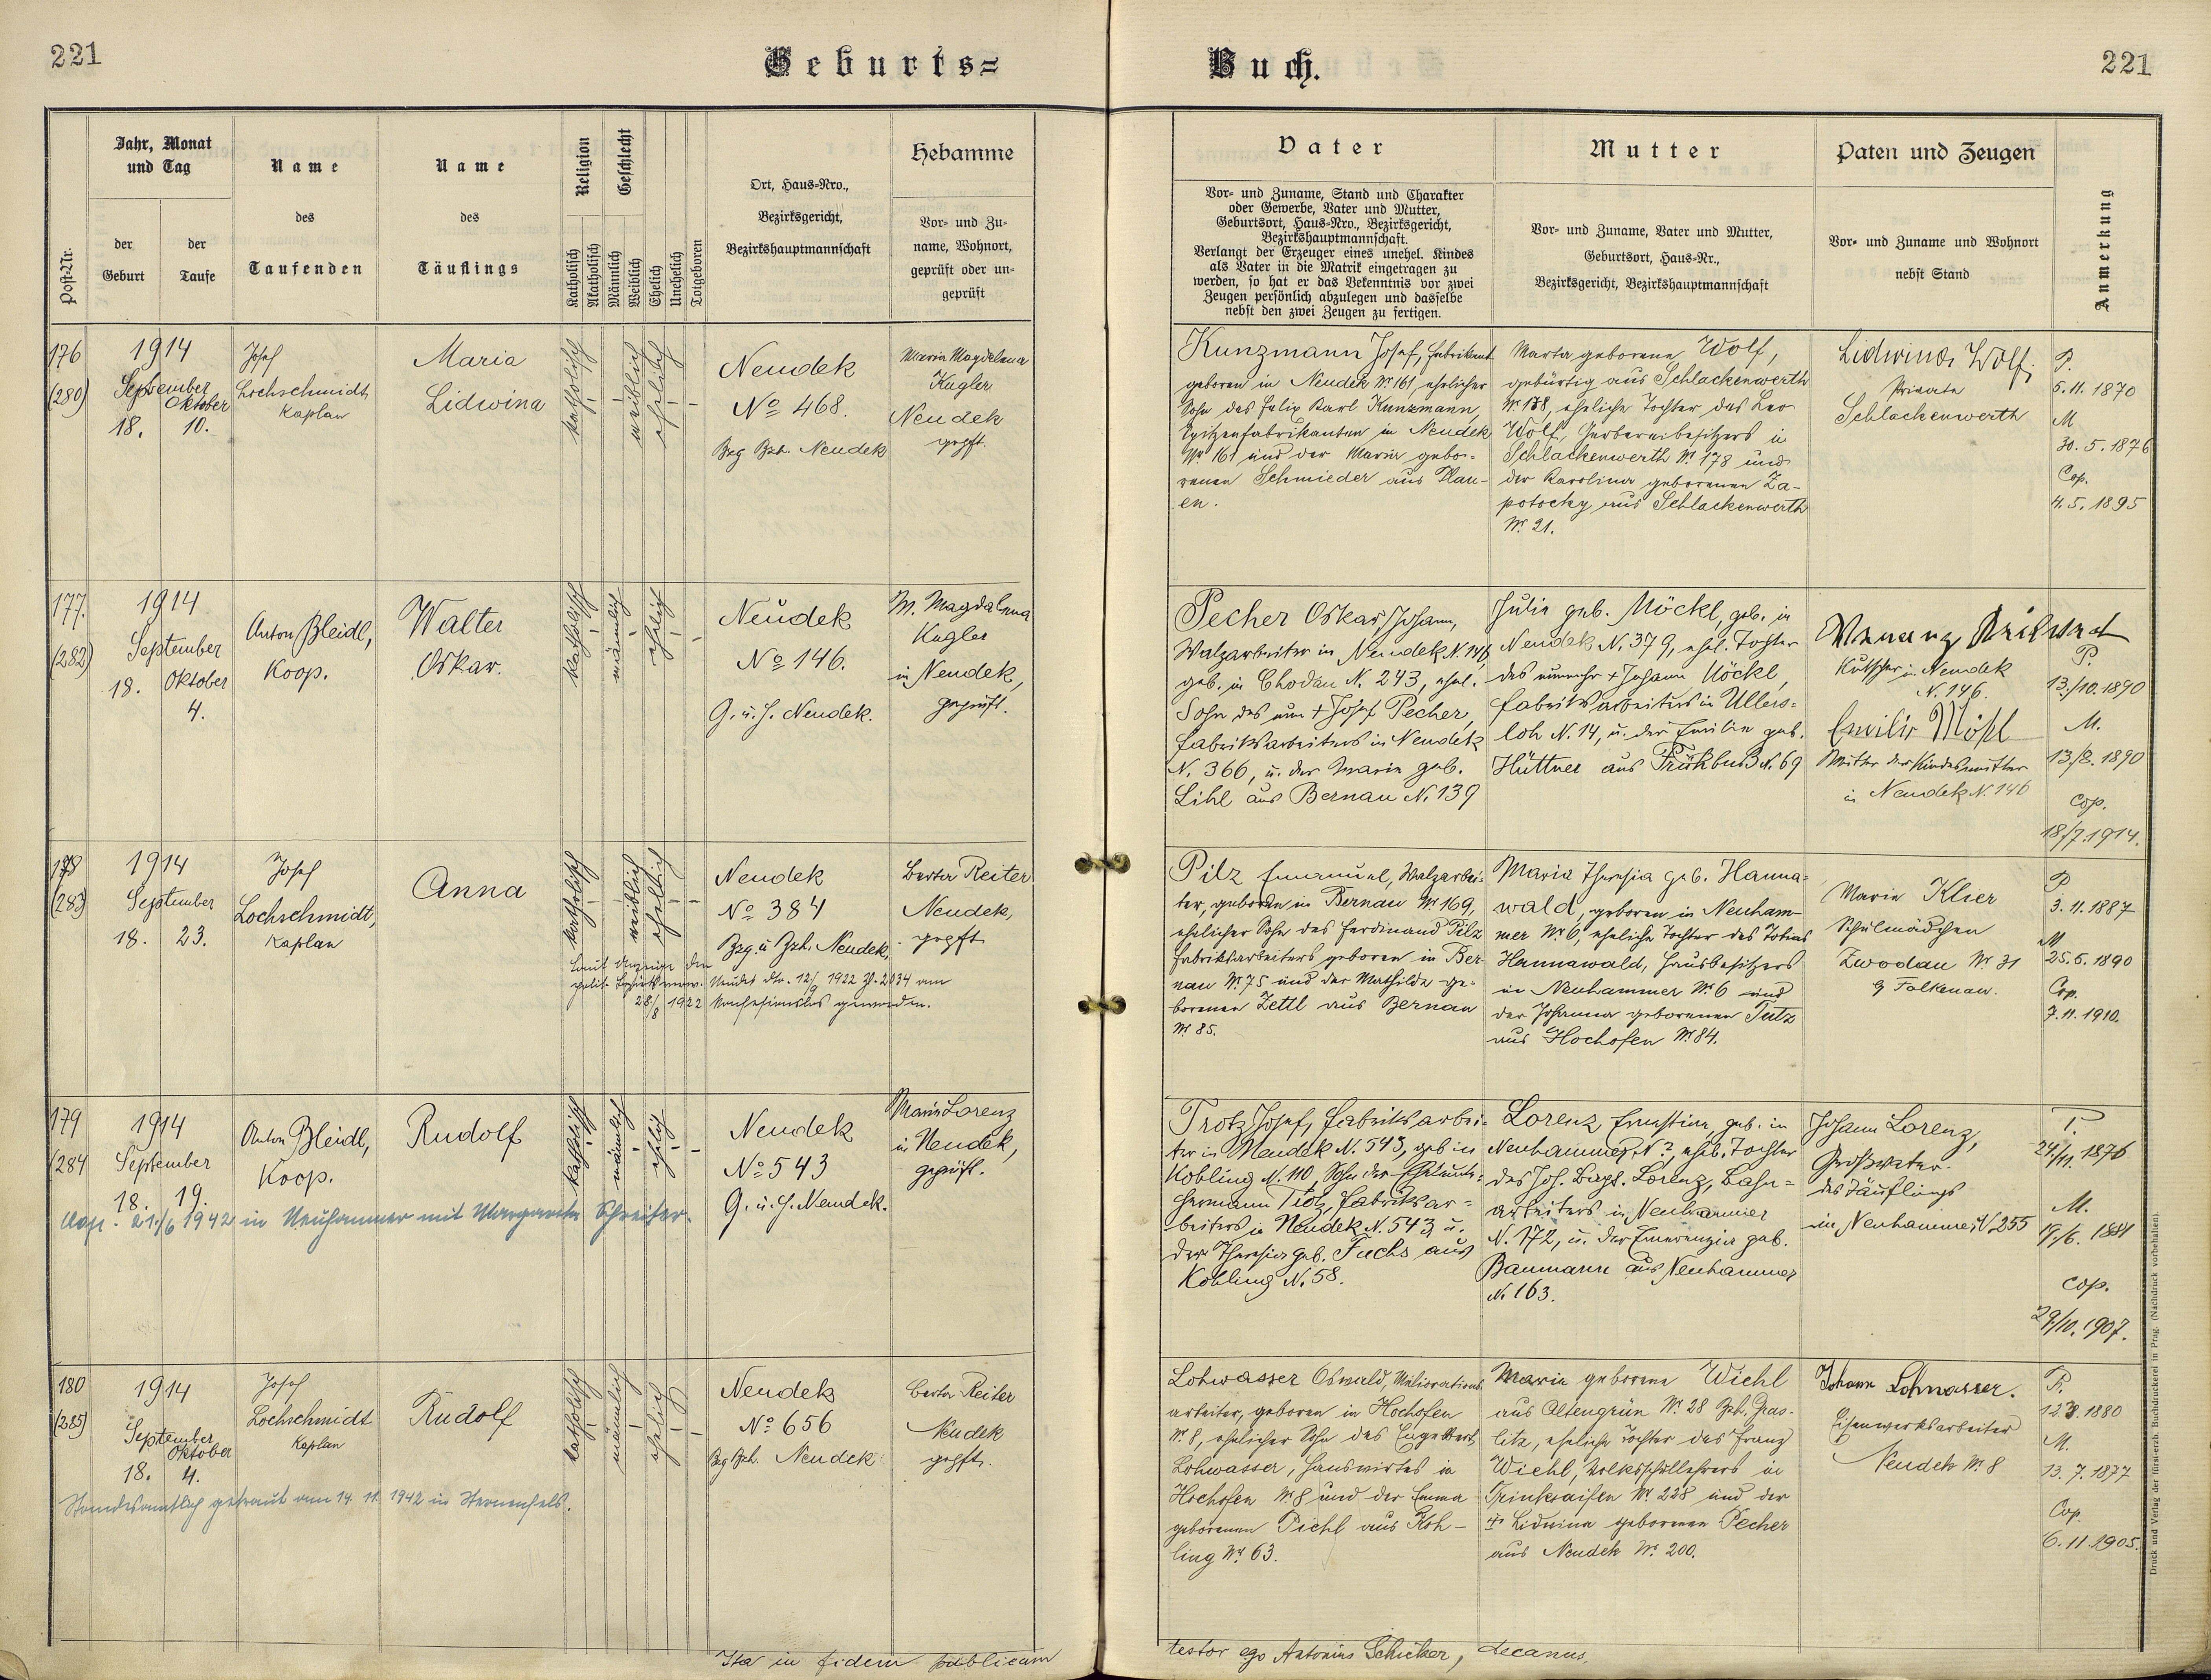 221
Geburts=
Buch.
221
Post-Nr.
Jahr, Monat
und Tag
der
Geburt
der
Taufe
Name
des
Taufenden
Name
des
Täuflings
Religion
Katholisch
Akatholisch
Geschlecht
Männlich
Weiblich
Ehelich
Unehelich
Totgeboren
Ort, Haus-Nro.,
Bezirksgericht,
Bezirkshauptmannschaft
Hebamme
Vor- und Zu-
name, Wohnort,
geprüft oder un-
geprüft
Vater
Vor- und Zuname, Stand und Charakter
oder Gewerbe, Vater und Mutter,
Geburtsort, Haus-Nro., Bezirksgericht,
Bezirkshauptmannschaft.
Verlangt der Erzeuger eines unehel. Kindes
als Vater in die Matrik eingetragen zu
werden, so hat er das Bekenntnis vor zwei
Zeugen persönlich abzulegen und dasselbe
nebst den zwei Zeugen zu fertigen.
Mutter
Vor- und Zuname, Vater und Mutter,
Geburtsort, Haus-Nr.,
Bezirksgericht, Bezirkshauptmannschaft
Paten und Zeugen
Vor- und Zuname und Wohnort
nebst Stand
Anmerkung
176
(280)
1914
September
Oktober
18. 10.
Josef
Lochschmidt
Kaplan
Maria
Lidwina
katholisch
weiblich
ehelich
Neudek
No 468.
Bzg Bzh. Neudek
Maria Magdalena
Kugler
Neudek
gepft.
Kunzmann Josef, Fabrikant
geboren in Neudek Nr 161, ehelicher
Sohn des Felix Karl Kunzmann,
Spitzenfabrikanten in Neudek
Nr 161 und der Maria gebo-
renen Schmieder aus Plau-
en.
Marta geborene Wolf,
gebürtig aus Schlackenwerth
Nr 178, eheliche Tochter des Leo
Wolf, Gerbereibesitzers in
Schlackenwerth Nr 178 und
der Karolina geborenen Za-
potocky aus Schlackenwerth
Nr 21.
Lidwina Wolf,
Private
Schlackenwerth
P.
5.11.1870
M
30.5.1876
Cop.
4.5.1895
177.
(282)
1914
September
18. Oktober
4.
Anton Bleidl,
Koop.
Walter
Oskar.
katholisch
männlich
ehlich
Neudek
No 146.
G. u. H. Neudek.
M. Magdalena
Kugler
in Neudek,
geprüft.
Pecher Oskar Johann,
Walzarbeiter in Neudek N. 146,
geb. in Chodau N. 243, ehel.
Sohn des nun + Josef Pecher,
Fabriksarbeiters in Neudek
N. 366, u. der Maria geb.
Lihl aus Bernau N. 139
Julie geb. Möckl, geb. in
Neudek N. 379, ehl. Tochter
des nunmehr + Johann Möckl,
Fabriksarbeiters in Ullers-
loh N. 14, u. der Emilie geb.
Hüttner aus Frühbuß N. 69
Kutscher in Neudek
N. 146.
Emilie Mökl
Mutter der Kindesmutter
in Neudek N. 146
P.
13./10.1890
M.
13./8.1890
Cop.
18/7.1914.
178
(283)
1914
September
18. 23.
Josef
Lochschmidt,
Kaplan
Anna
katholisch
weiblich
ehelich
Neudek
No 384
Bzg. u Bzh. Neudek,
Laut Anzeige der
polit. Bezirksverw. Neudek dto. 12/9 1922 Zl. 2034 am
28/8 1922 konfessionslos geworden.
Berta Reiter
Neudek,
gepft
Pilz Emanuel, Walzarbei-
ter, geboren in Bernau Nr 169,
ehelicher Sohn des Ferdinand Pilz
Fabriksarbeiters geboren in Ber-
nau Nr 75 und der Mathilde ge-
borenen Zettl aus Bernau
Nr 85.
Maria Theresia geb. Hanna-
wald, geboren in Neuham-
mer Nr 6, eheliche Tochter des Tobias
Hannawald, Hausbesitzers
in Neuhammer Nr 6 und
der Johanna geborenen Tutz
aus Hochofen Nr 84.
Marie Klier
Schulmädchen
Zwodau Nr 31
G Falkenau.
P
3.11.1887
M
25.5.1890
Cop.
7.11.1910.
179
(284
1914
September
18. 19.
Anton Bleidl,
Koop.
Rudolf
katholisch
männlich
ehlich
Neudek
No 543
G. u. H. Neudek.
Marie Lorenz
in Neudek,
geprüft.
Cop. 21./6 1942 in Neuhammer mit Margareta Schreiter.
Trotz Josef, Fabriksarbei-
ter in Neudek N. 543, geb in
Kobling N. 110, Sohn der Eheleute:
Hermann Trotz, Fabriksar-
beiters in Neudek N. 543 u.
der Theresia geb. Fuchs aus
Kohling N. 58.
Lorenz Ernstine, geb. in
Neuhammer, N ?, ehl. Tochter
des Joh. Bapt. Lorenz, Bahn-
arbeiters in Neuhammer
N. 172, u. der Emerenzia geb.
Baumann aus Neuhammer
N. 163.
Johann Lorenz,
Großvater
des Täuflings
in Neuhammer, N. 255
P.
24/11.1876
M.
19./6.1881
Cop.
29/10.1907.
180
(285)
1914
September
Oktober
18. 4.
Josef
Lochschmidt
Kaplan
Rudolf
katholisch
männlich
ehelich
Neudek
No 656
Bzg Bzh. Neudek
Berta Reiter
Neudek
gepft.
Standesamtlich getraut am 14. 11. 1942 in Sternenfels.
Lohwasser Oswald, Meliorations-
arbeiter, geboren in Hochofen
Nr 8, ehelicher Sohn des Engelbert
Lohwasser, Hauswirtes in
Hochofen Nr 8 und der Emma
geborenen Pichl aus Koh-
ling Nr 63.
Maria geborene Wiehl
aus Altengrün Nr 28 Bzh. Gras-
litz, eheliche Tochter des Franz
Wiehl, Volksschullehrers in
Trinksaifen Nr 228 und der
Lidwina geborenen Pecher
aus Neudek Nr. 200.
Johann Lohwasser.
Eisenwerksarbeiter
Neudek Nr 8
P.
12.3.1880
M.
13.7.1877
Cop
6.11.1905.
Ita in fidem publicam
testor ego Antonius Schicker, decanus.
Druck und Verlag der fürst-erzb. Buchdruckerei in Prag. (Nachdruck vorbehalten).